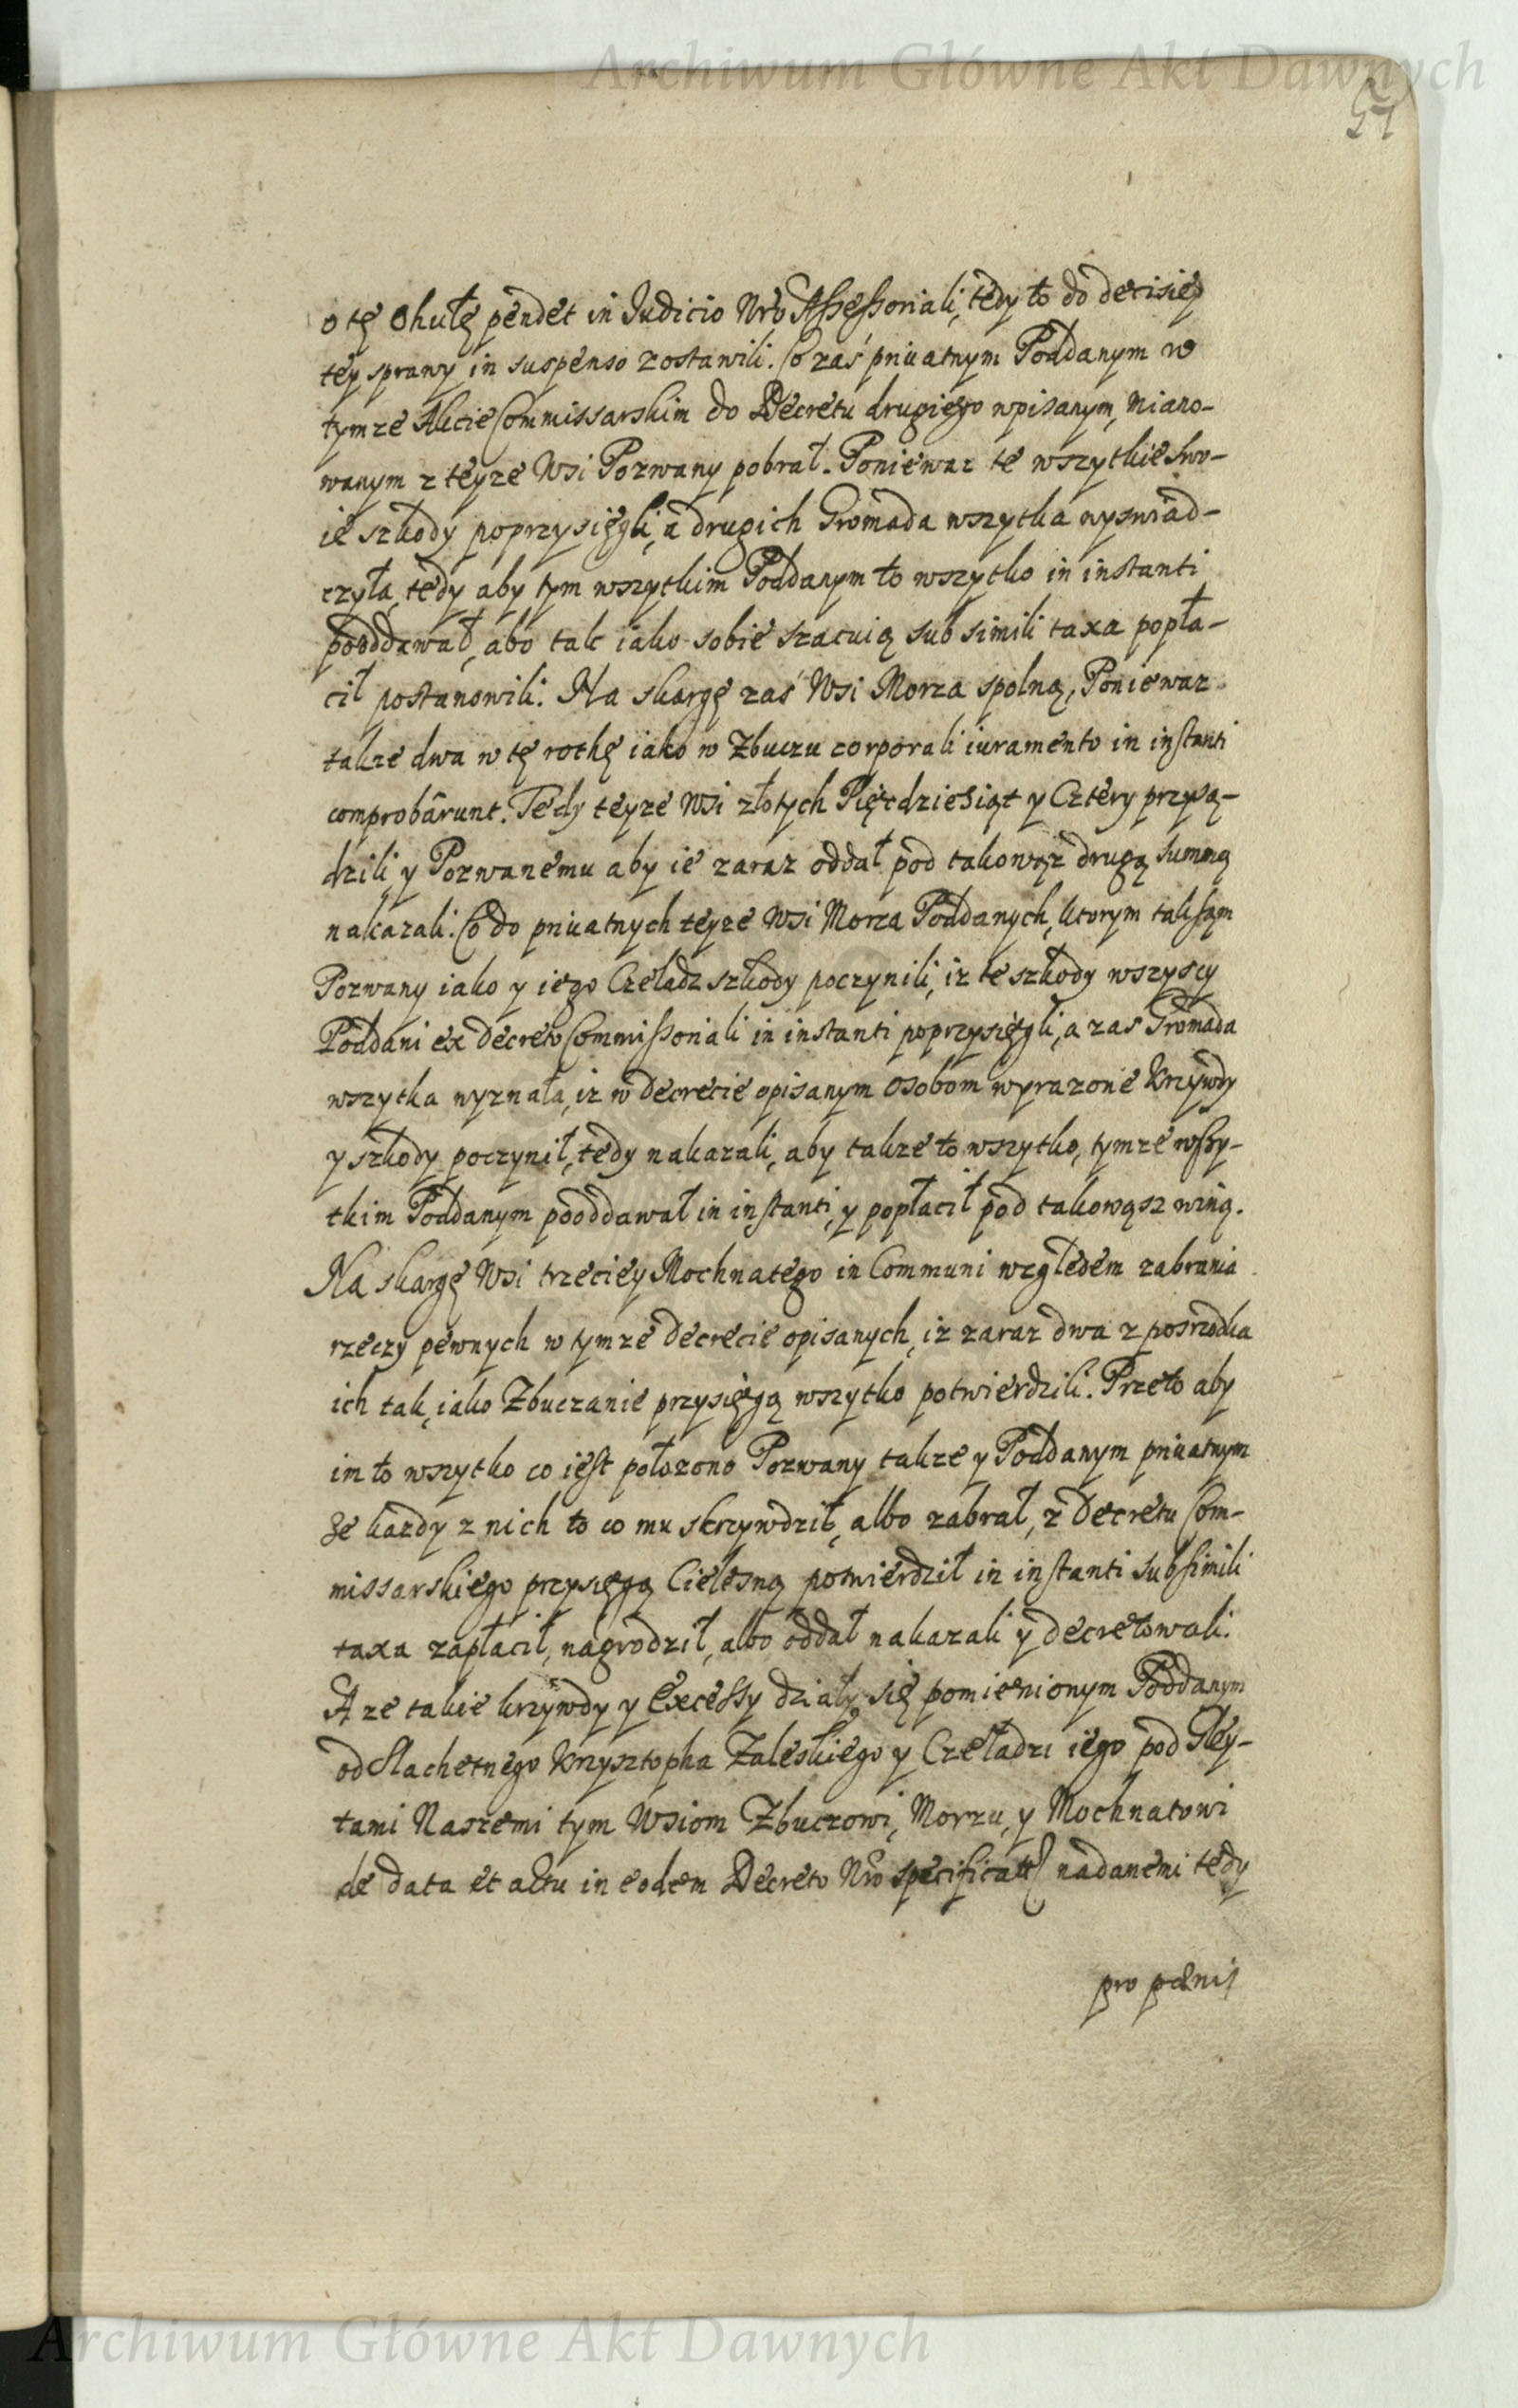 Archiwum Główne Akt Dawnych
57
o tę Ohułę pendet in Iudicio Nro Assessoriali, tedy to do decisiey
tey sprawy in suspenso zostawili. Co zaś priuatnym Poddanym w
tymze Akcie Commissarskim do Decretu drugiego wpisanym, miano-
wanym z teyze Wsi Pozwany pobrał. Poniewaz te wszytkie swo-
ie szkody poprzysięgli, a drugich Gromada wszytka wyswiad-
czyła, tedy aby tym wszytkim Poddanym to wszytko in instanti
pooddawał, abo tak iako sobie szacuią sub simili taxa popła-
cił postanowili. Na skargę zaś Wsi Morza spolną, Poniewaz
takze dwa w tę rothę iako w Zbuczu corporali iuramento in instanti
comprobârunt. Tedy teyze Wsi złotych Pięćdziesiąt y Cztery przysą-
dzili, y Pozwanemu aby ie zaraz oddał pod takowąz drugą summą
nakazali. Co do priuatnych teyze Wsi Morza Poddanych, ktorym tak sam
Pozwany iako y iego Czeladz szkody poczynili, iz te szkody wszyscy
Poddani ex decreto Commissoriali in instanti poprzysięgli, a zas Gromada
wszytka wyznała, iz w decrecie opisanym osobom wyrazone krzywdy
y szkody poczynił, tedy nakazali, aby takze to wszytko, tymze wszy-
tkim Poddanym pooddawał in instanti, y popłacił pod takowąsz winą.
Na skargę Wsi trzeciey Mochnatego in Communi względem zabrania
rzeczy pewnych w tymze decrecie opisanych, iz zaraz dwa z posrzodka
ich tak, iako Zbuczanie przysięgą wszytko potwierdzili. Przeto aby
im to wszytko co iest położono Pozwany takze y Poddanym priuatnym
Ze kazdy z nich to co mu skrzywdził, albo zabrał, z Decretu Com-
missarskiego przysięgą Cielesną potwierdził in instanti sub simili
taxa zapłacił, nagrodził, albo oddał nakazali y decretowali.
A ze takie krzywdy y Excessy działy się pomienionym Poddanym
od Slachetnego Krzysztopha Zaleskiego y Czeladzi iego pod Gley-
tami Naszemi tym Wsiom Zbuczowi, Morzu, y Mochnatowi
de data et actu in eodem Decreto Nro specificatis nadanemi tedy
pro pænis
Archiwum Główne Akt Dawnych